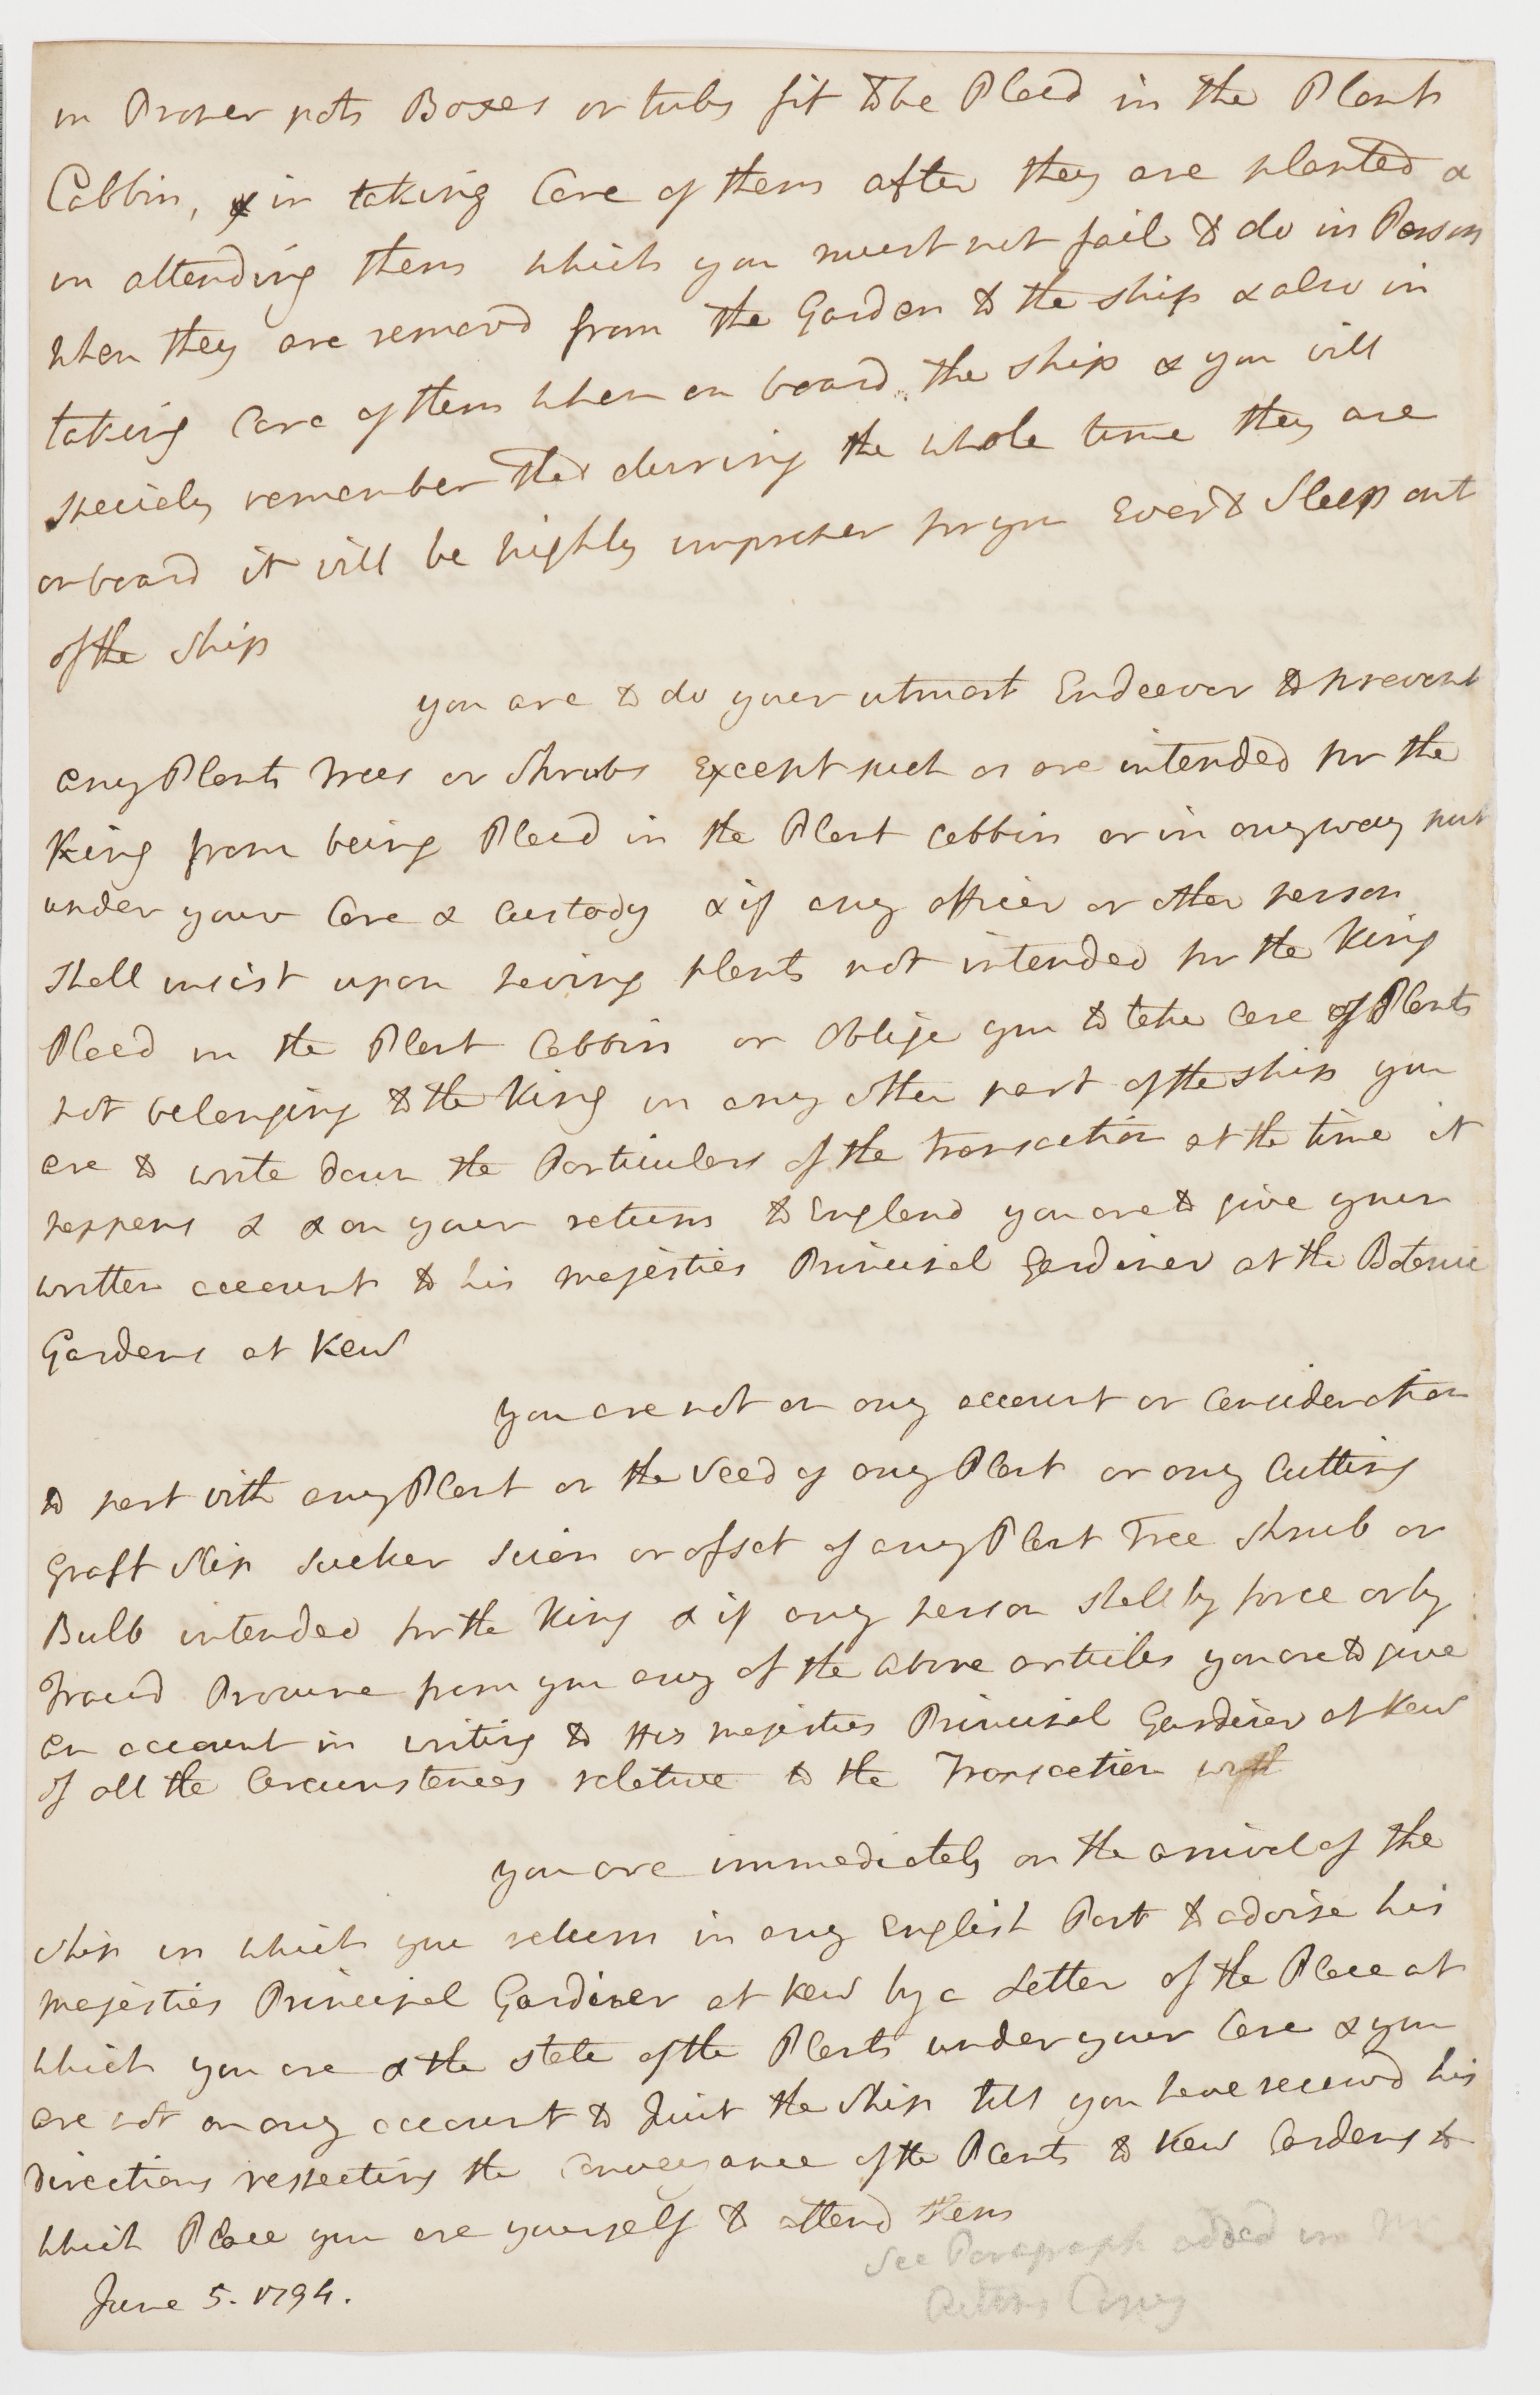 in Proper pots Boxes or tubs fit to be Placd in the Plant
Cabbin, & in taking Care of them after they are planted &
in attending them which you must not fail to do in Person
when they are removd from the Garden to the ship & also in
taking Care of them when on board the ship & you will
specialy remember that during the whole time they are
on board it will be highly improper for you Ever to Sleep out
of the Ship
you are to do your utmost Endeavor to prevent
any Plants Trees or Shrubs Except such as are intended for the
King from being Placd in the Plant Cabbin or in any way put
under your Care & Custody & if any officer or other person
shall insist upon having plants not intended for the King
Placd in the Plant Cabbin or Oblige you to take Care of Plants
not belonging to the King in any other part of the ship you
are to write down the Particulars of the transaction at the time it
happens & & on your return to England you are to give your
written account to his majesties Principal Gardiner at the Botanic
Gardens at Kew
you are not on any account or Consideration
to part with any Plant or the Seed of any Plant or any Cutting
Graft Slip Sucker Scion or ofset of any Plant Tree Shrub or
Bulb intended for the King & if any person shall by force or by
Fraud Procure from you any of the above articles you are to give
an account in writing to His majesties Principal Gardiner at Kew
of all the Circumstances relative to the Transaction with
you are immediately on the arrival of the
ship in which you return in any English Port to advise his
majesties Principal Gardiner at Kew by a Letter of the Place at
which you are & the state of the Plants under your Care & you
are not on any account to Quit the Ship till you have receivd his
Directions respecting the Conveyance of the Plants to Kew Gardens to
which Place you are yourself to attend them
See Paragraph added in Mr
Aitons Copy
June 5. 1794.